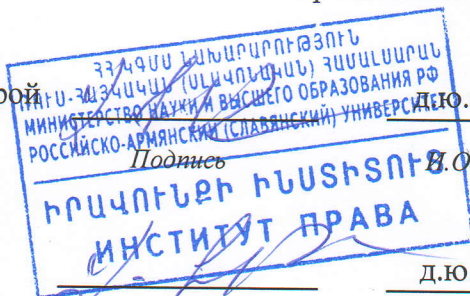 ՀՀ ԿԳՄՍ ՆԱԽԱՐԱՐՈՒԹՅՈՒՆ
ՌՈՒՍ-ՀԱՅԿԱԿԱՆ (ՍԼԱՎՈՆԱԿԱՆ) ՀԱՄԱԼՍԱՐԱՆ
МИНИСТЕРСТВО НАУКИ И ВЫСШЕГО ОБРАЗОВАНИЯ РФ
рой д.ю.
РОССИЙСКО-АРМЯНСКИЙ (СЛАВЯНСКИЙ) УНИВЕРСИТЕТ
Подпись И.О
ԻՐԱՎՈՒՆՔԻ ԻՆՍՏԻՏՈՒՏ
ИНСТИТУТ ПРАВА
д.ю